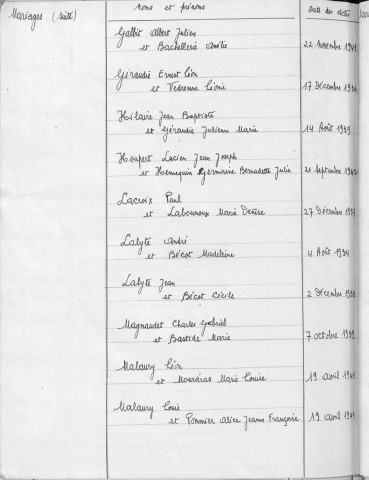 Mariages (suite)
noms et prénoms
Date des actes
Galbit Albert Julien
et Bachellerie Amélie
22 Novembre 1941
Géraudie Ernest Léon
et Vedrenne Léonie
17 Décembre
Hilaire Jean Baptiste
et Géraudie Julienne Marie
14 Août 1939
Houpert Lucien Jean Joseph
et Hannequin Germaine Bernadette Julie
21 Septembre
Lacroix Paul
et Labounoux Marie Denise
27 Décembre 1937
Lalyte André
et Bécot Madeleine
4 Août 1934
Lalyte Jean
et Bécot Cécile
2 Décembre
Magnaudet Charles Gabriel
et Bastide Marie
7 octobre 1939
Malaury Léon
et Marie Louise
19 avril 1941
Malaury Louis
et Pommier Alice Jeanne Françoise
19 avril 1941